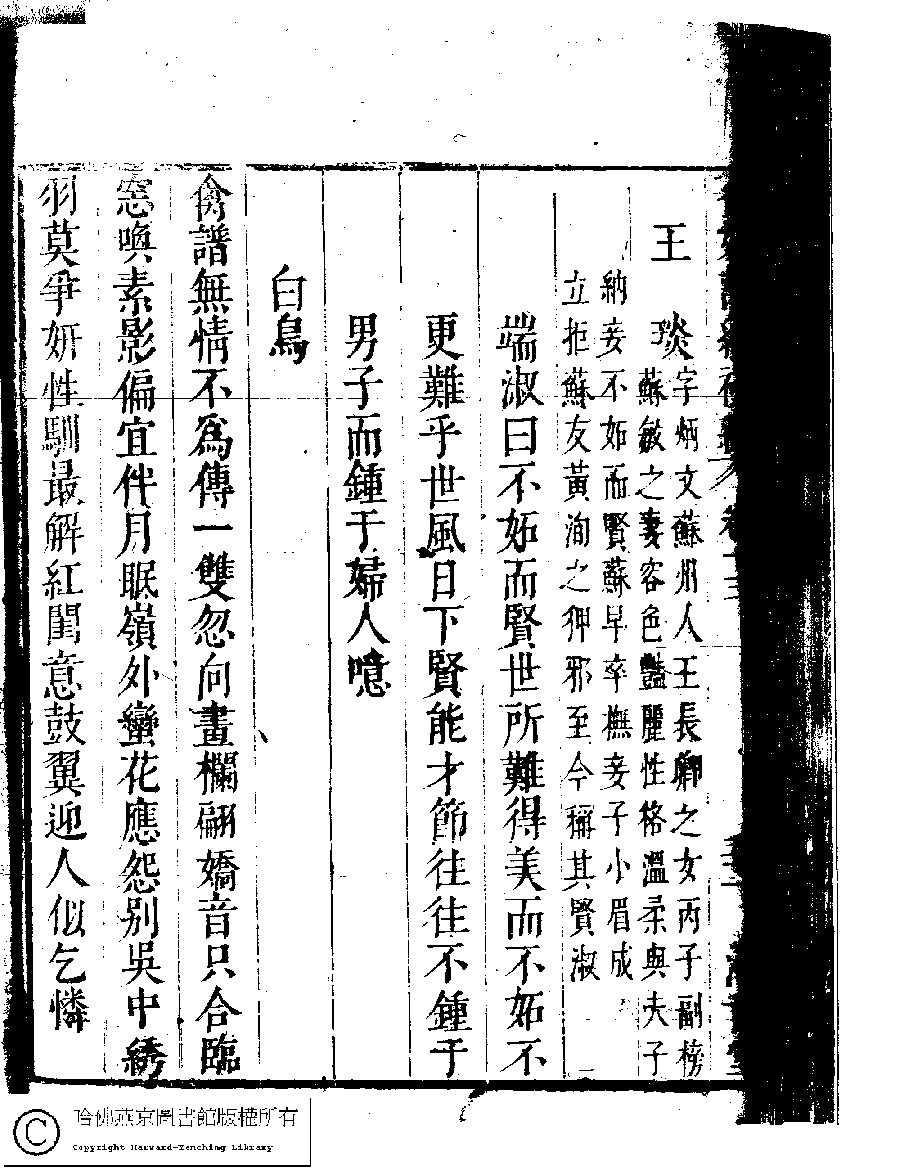 王　琰
字炳文蘇州人王長卿之女丙子副榜
蘇敏之妻容色豔麗性格溫柔與夫子
納妾不妬而賢蘇早卒撫妾子小眉成
立拒蘇友黃洵之狎邪至今稱其賢淑
端淑曰不妬而賢世所難得美而不妬不
更難乎世風日下賢能才節往往不鍾于
男子而鍾于婦人噫
白鳥
禽譜無情不爲傳一雙忽向畫欄翩嬌音只合臨
窓喚素影偏宜伴月眠嶺外蠻花應怨别吳中綉
羽莫爭妍性馴最解紅閨意鼓翼迎人似乞憐
哈佛燕京圖書館版權所有
Copyright Harvard-Yenching Library